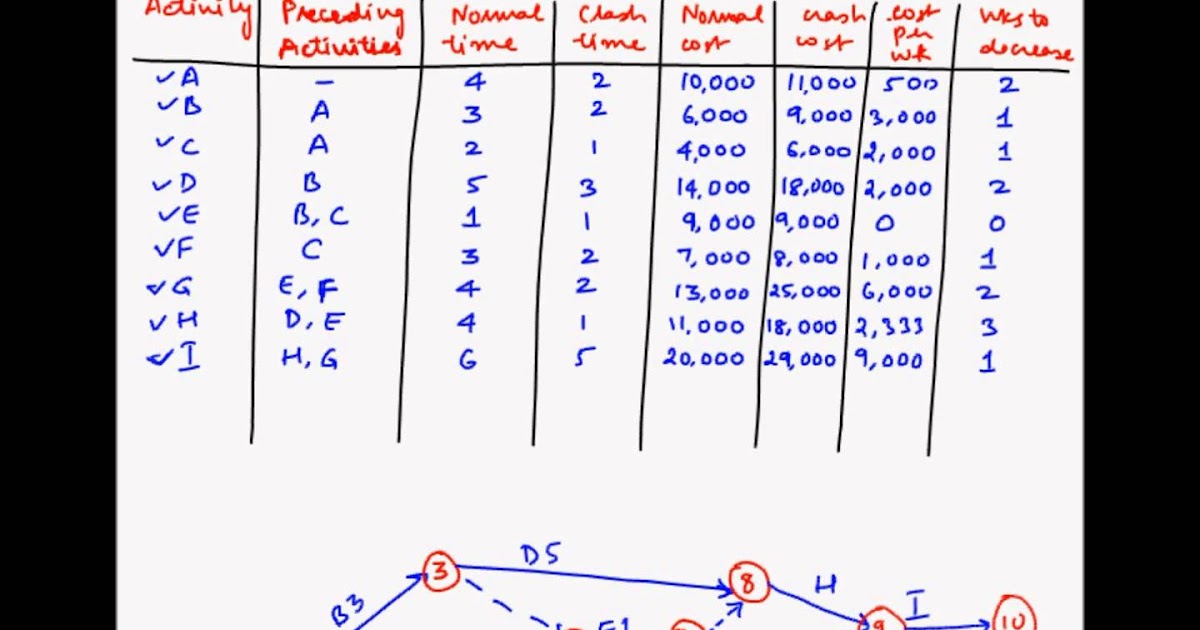 Activity Preceding Activities Normal time Clash time Normal cost crash cost cost per wk Wks to decrease
✓A - 4 2 10,000 11,000 500 2
✓B A 3 2 6,000 9,000 3,000 1
✓C A 2 1 4,000 6,000 2,000 1
✓D B 5 3 14,000 18,000 2,000 2
✓E B, C 1 1 9,000 9,000 0 0
✓F C 3 2 7,000 8,000 1,000 1
✓G E, F 4 2 13,000 25,000 6,000 2
✓H D, E 4 1 11,000 18,000 2,333 3
✓I H, G 6 5 20,000 29,000 9,000 1
D5
3 8 H
B3 I
E1 9 10